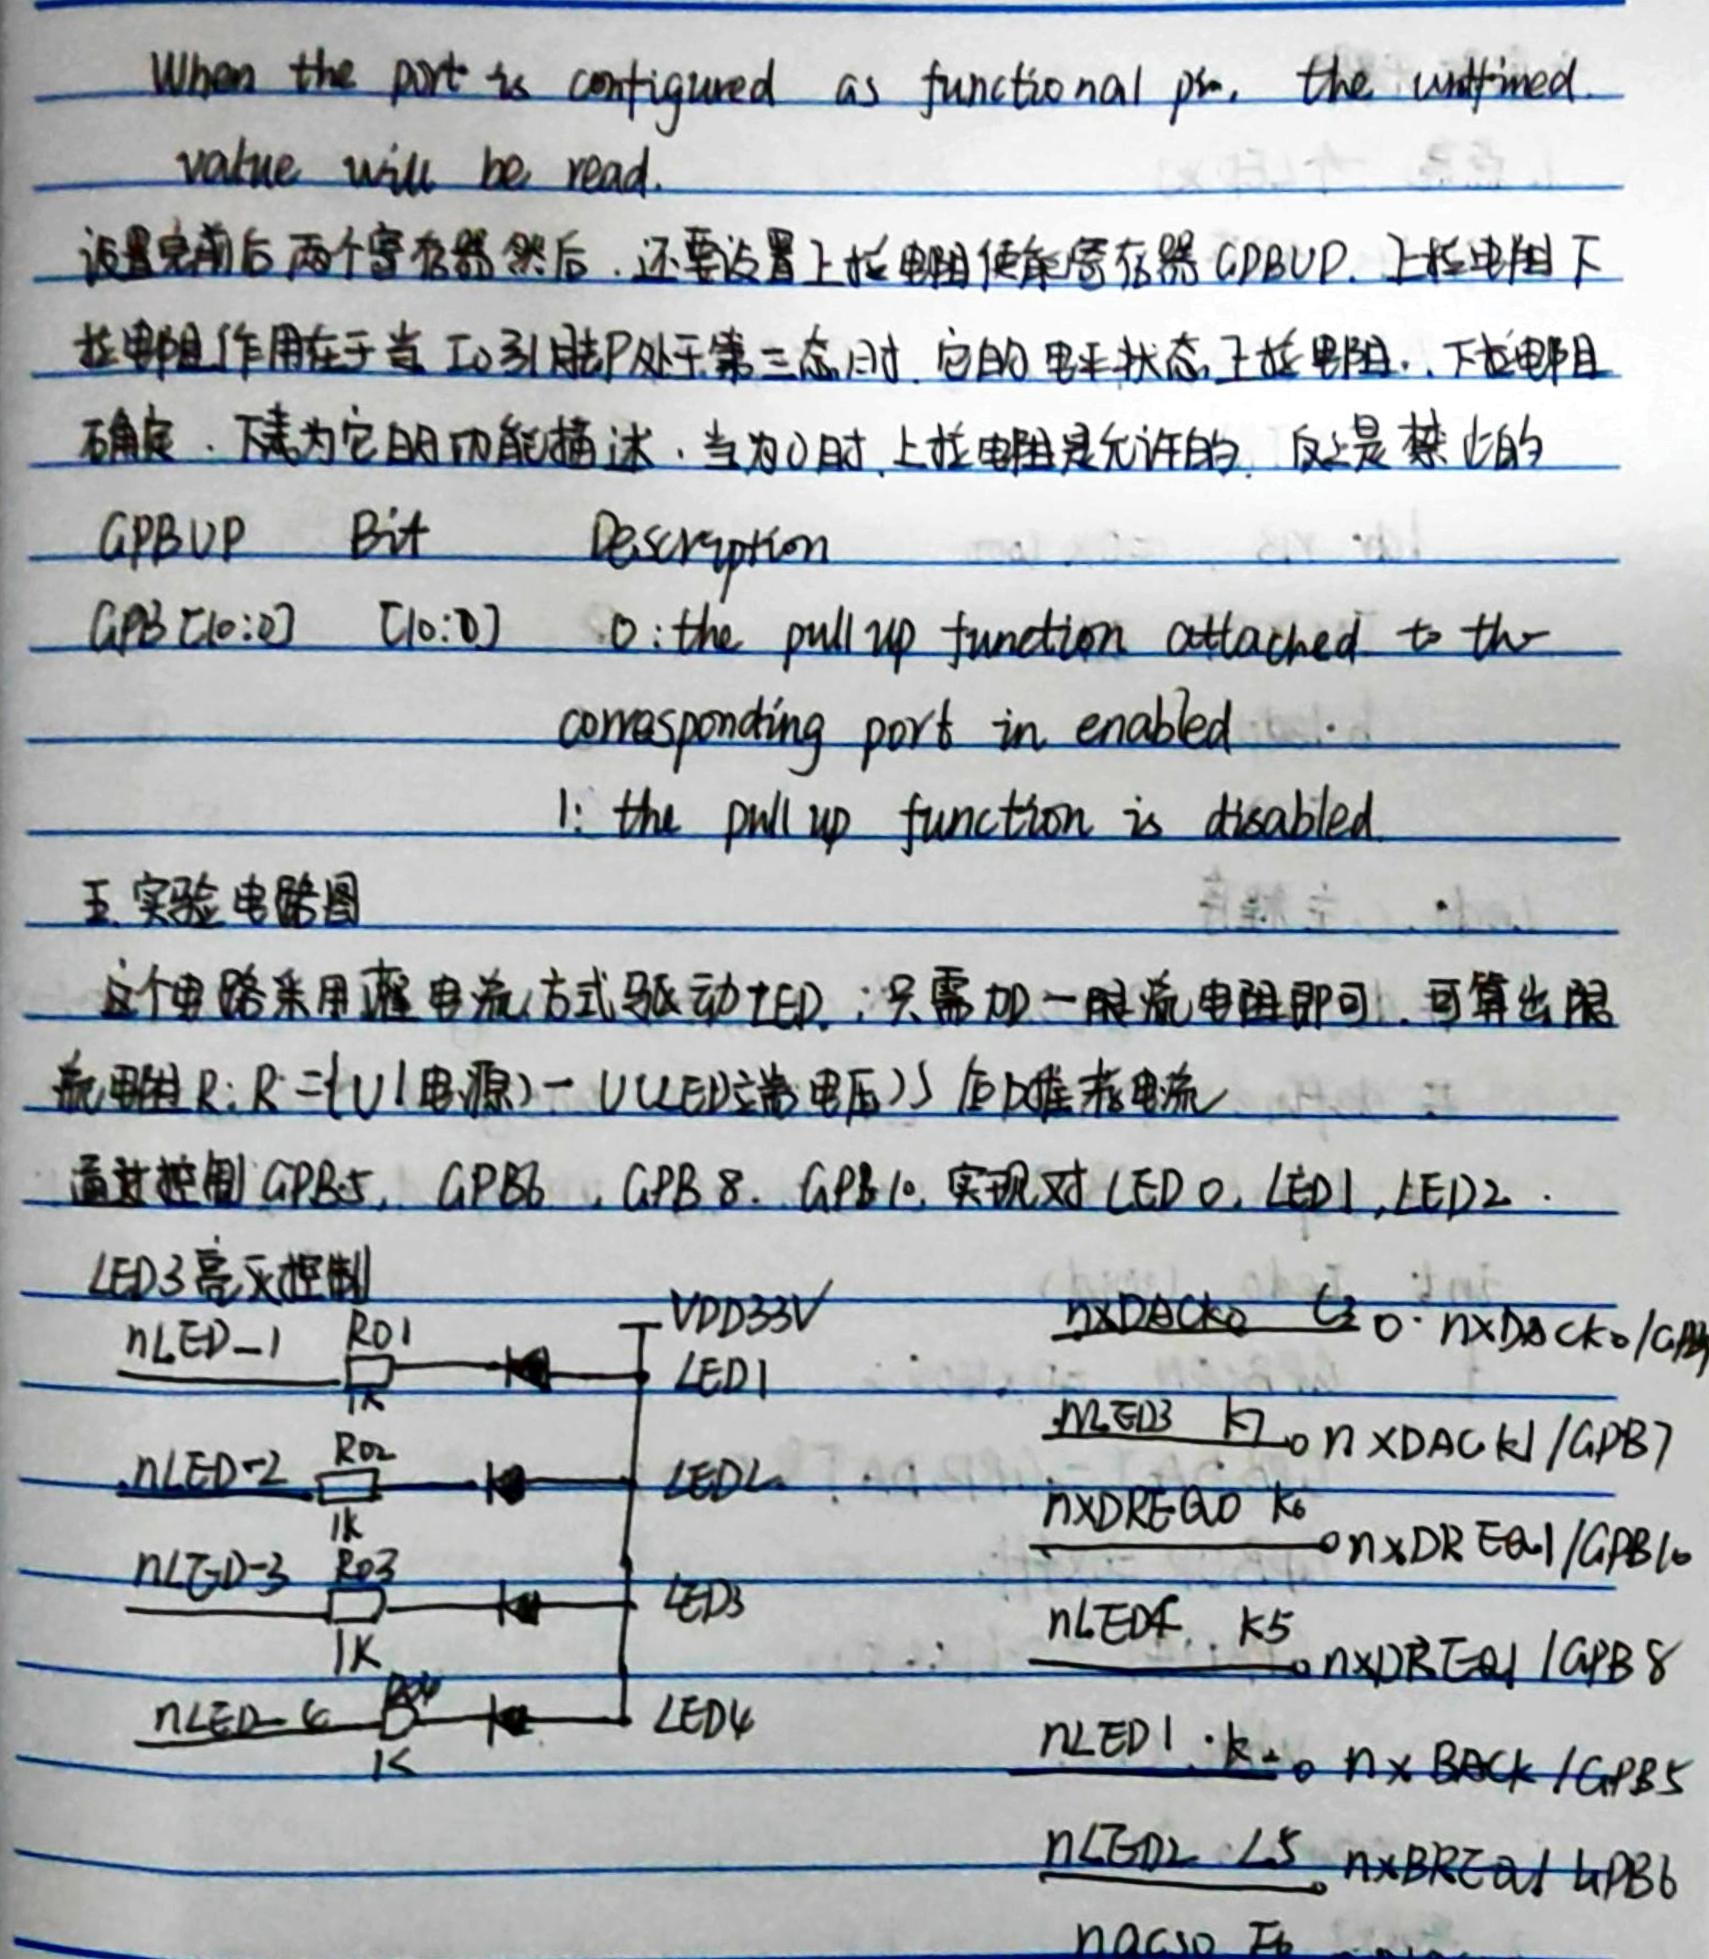 When the port is configured as functional pin, the undfined
value will be read.
设置完前后两个寄存器然后,还要设置上拉电阻使能寄存器GPBUP.上拉电阻下
拉电阻作用在于当IO引脚P处于第三态时.它的电平状态上拉电阻.、下拉电阻
确定.下表为它的功能描述.当为0时.上拉电阻是允许的.反之是禁止的
GPBUP Bit Description
GPB[10:0] [10:0] 0:the pull up function attached to the
corresponding port in enabled
1: the pull up function is disabled.
五.实验电路图
这个电路采用灌电流方式驱动LED.;只需加一限流电阻即可.可算出限
流电阻R:R={U(电源)-U(LED端电压)}
通过控制GPB5, GPB6, GPB8. GPB10.实现对LED0, LED1, LED2.
LED3亮灭控制
VDD33V
nLED-1 R01 1K LED1
nLED-2 R02 1K LED2
nLED-3 R03 1K LED3
nLED-4 R04 1K LED4
nxDACK0 nxDACK0/GPB9
nLED3 K7 nXDACK1/GPB7
nXDREQ0 K6 nxDREQ1/GPB10
nLED4 K5 nxDREQ1/GPB8
nLED1 nxBACK/GPB5
nLED2 L5 nxBREQ/GPB6